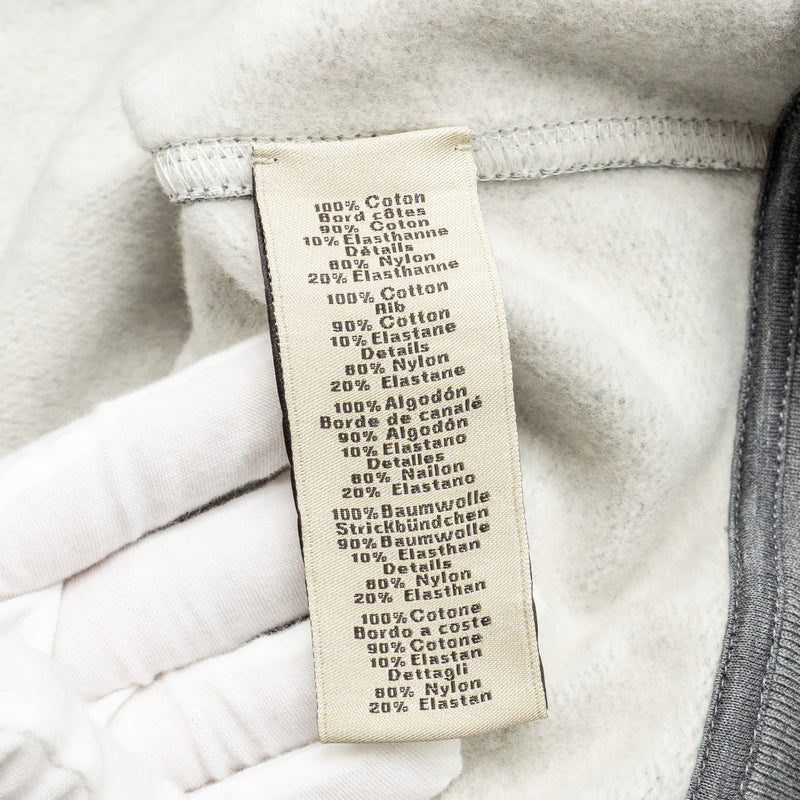 100% Coton
Bord côtes
90% Coton
10% Elasthanne
Détails
80% Nylon
20% Elasthanne
100% Cotton
Rib
90% Cotton
10% Elastane
Details
80% Nylon
20% Elastane
100% Algodón
Borde de canalé
90% Algodón
10% Elastano
Detalles
80% Nailon
20% Elastano
100% Baumwolle
Strickbündchen
90% Baumwolle
10% Elasthan
Details
80% Nylon
20% Elasthan
100% Cotone
Bordo a coste
90% Cotone
10% Elastan
Dettagli
80% Nylon
20% Elastan